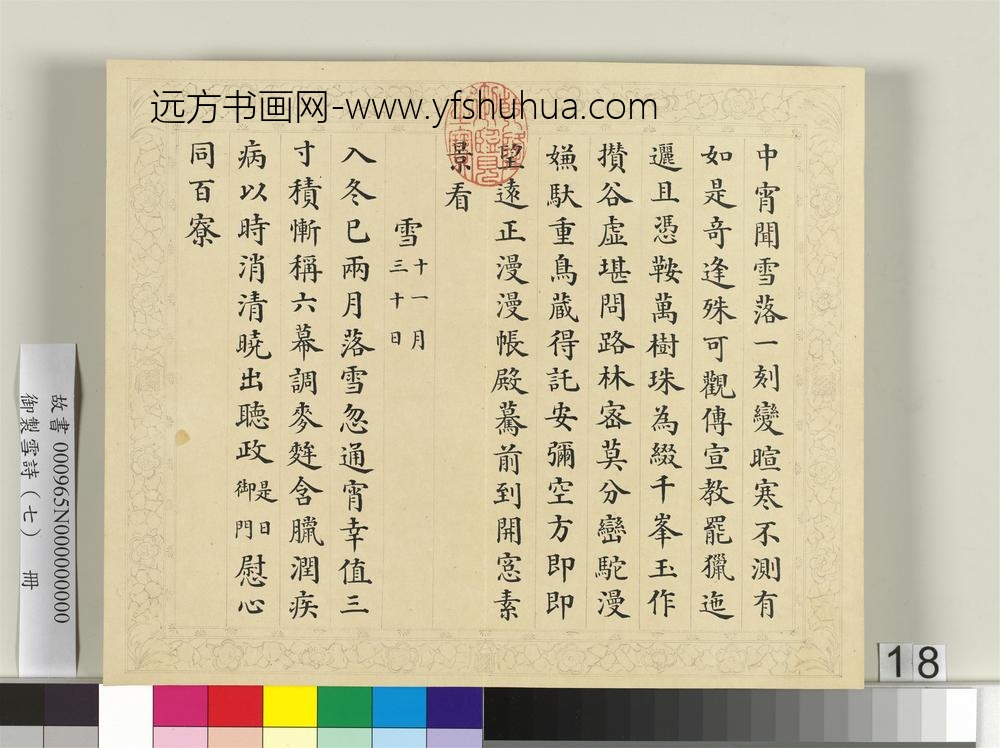 远方书画网-www.yfshuhua.com
中宵聞雪落一刻變暄寒不測有
如是竒逢殊可觀傳宣教罷獵迤
邐且憑鞍萬樹珠為綴千峯玉作
攢谷虛堪問路林宻莫分巒駝漫
嫌馱重鳥蔵得託安彌空方即即
望遠正漫漫帳殿驀前到開窓素
景看
雪十一月三十日
入冬已兩月落雪忽通宵幸值三
寸積慚稱六幕調麥麰含臘潤疾
病以時消清曉出聽政是日御門慰心
同百寮
故書 000965N000000000
御製雪詩（七） 冊
18